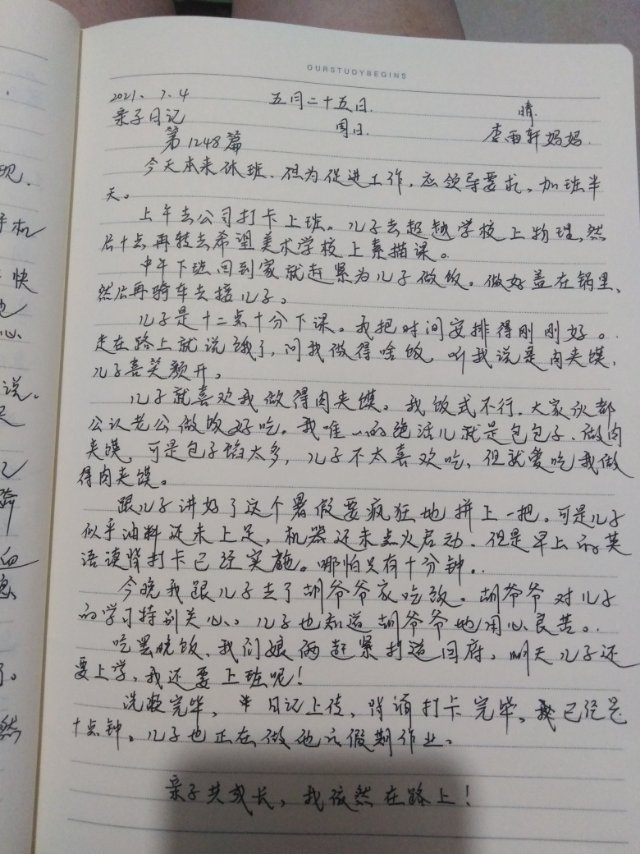 OURSTUDYBEGINS
2021.7.4 五月二十五日. 晴.
亲子日记 周日. 李雨轩妈妈.
第1248篇
今天本来休班.但为促进工作,应领导要求,加班半
天。
上午去公司打卡上班。儿子去超越学校上物理,然
后十点再转去希望美术学校上素描课。
中午下班回到家就赶紧为儿子做饭。做好盖在锅里、
然后再骑车去接儿子。
儿子是十二点十分下课。我把时间安排得刚刚好。
走在路上就说饿了,问我做得啥饭,听我说是肉夹馍,
儿子喜笑颜开。
儿子就喜欢我做得肉夹馍。我饭式不行.大家伙都
公认老公做饭好吃。我唯一的绝活儿就是包包子.做肉
夹馍.可是包子馅太多,儿子不太喜欢吃,但就爱吃我做
得肉夹馍。
跟儿子讲好了这个暑假要疯狂地拼上一把。可是儿子
似乎油料还未上足,机器还未点火启动.但是早上的英
语读背打卡已经实施。哪怕只有十分钟。
今晚我跟儿子去了胡爷爷家吃饭。胡爷爷对儿子
的学习特别关心、儿子也知道胡爷爷地用心良苦。
吃罢晚饭、我们娘俩赶紧打道回府,明天儿子还
要上学,我还要上班呢!
洗漱完毕,日记上传,背诵打卡完毕。我已经是
十点钟。儿子也正在做他的假期作业。
亲子共成长,我依然在路上!
现.
手机
快
也
心
说。
足
血
了。
然